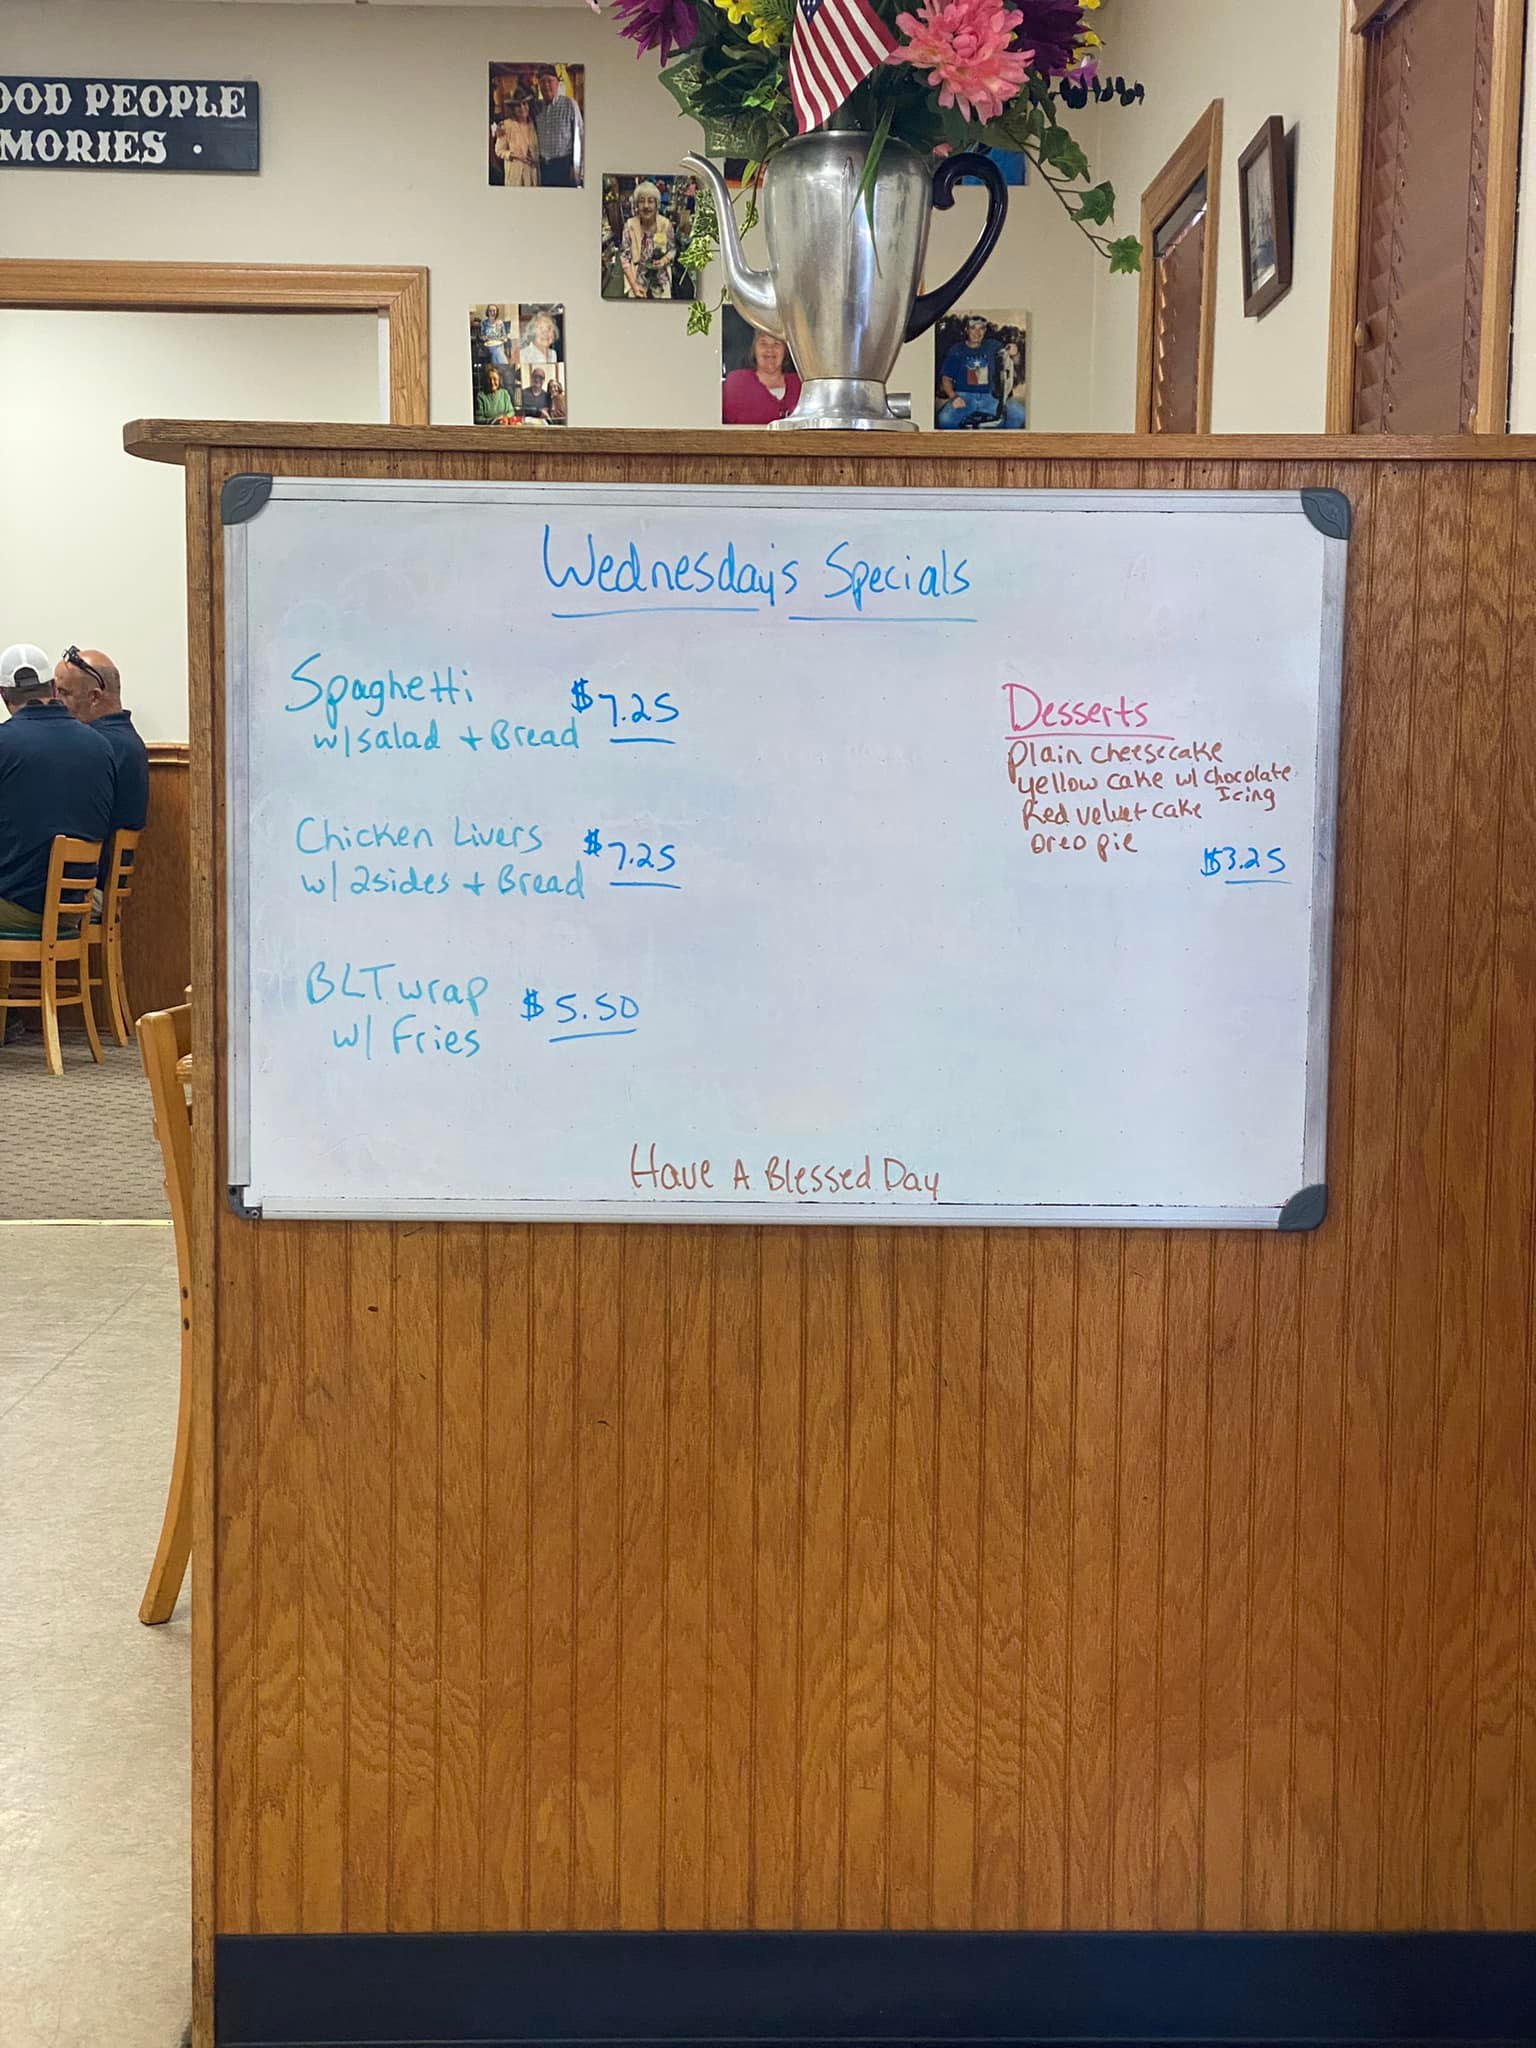 OOD PEOPLE
MORIES .
Wednesday's Specials
Spaghetti $7.25
w/salad + Bread
Chicken Livers $7.25
w/ 2sides + Bread
BLT wrap $5.50
w/ Fries
Desserts
Plain cheesecake
yellow cake w/ chocolate
Icing
Red velvet cake
oreo pie
$3.25
Have A Blessed Day